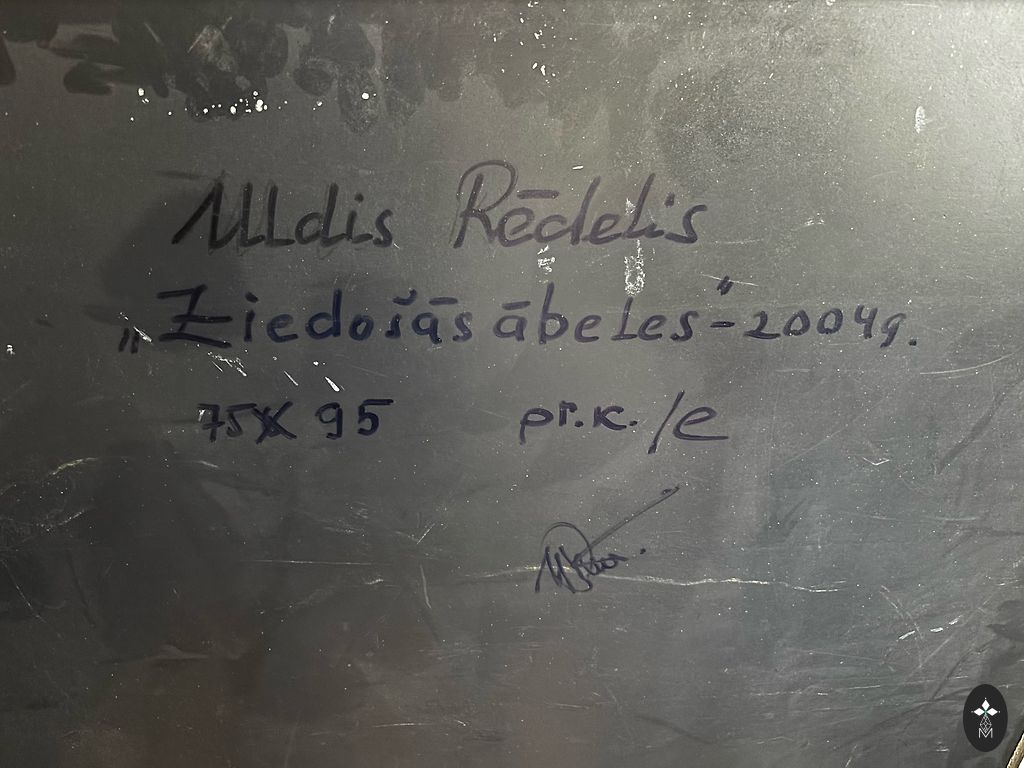 Uldis Rēdelis
„Ziedošās ābeles“ - 2004g.
75x95 pr.k./e